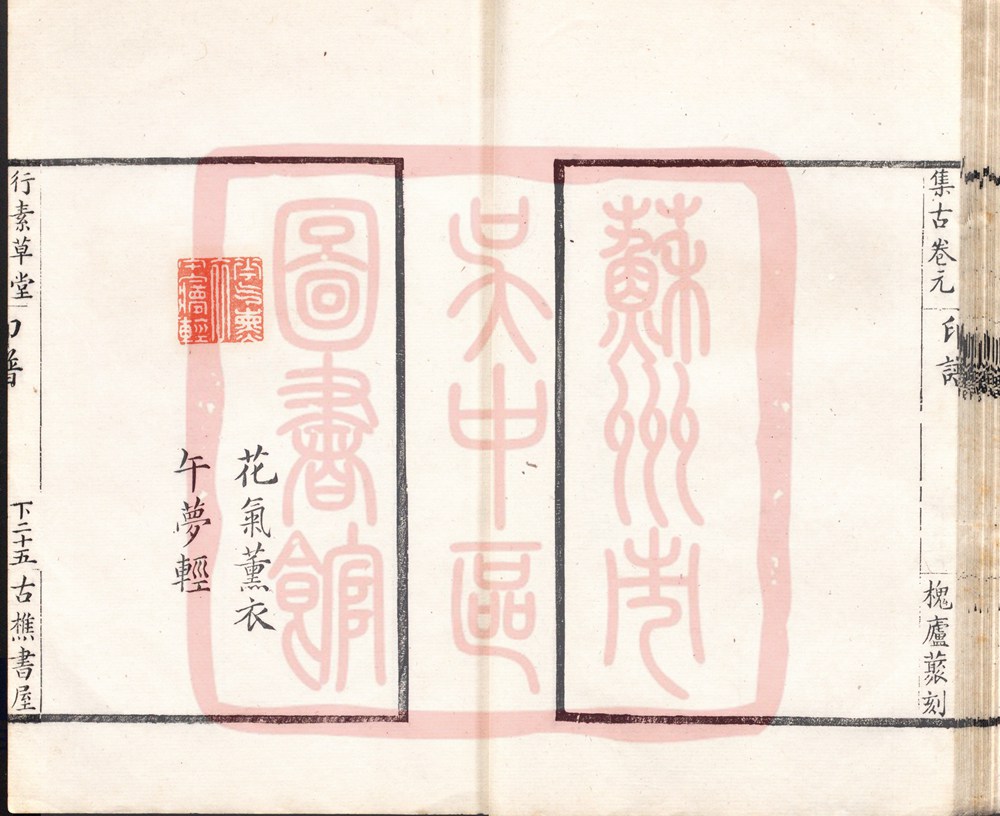 集古卷元
印譜
槐廬藂刻
蘇州市
吳中區
圖書館
花氣薰衣
午夢輕
行素草堂
下二十五
古樵書屋